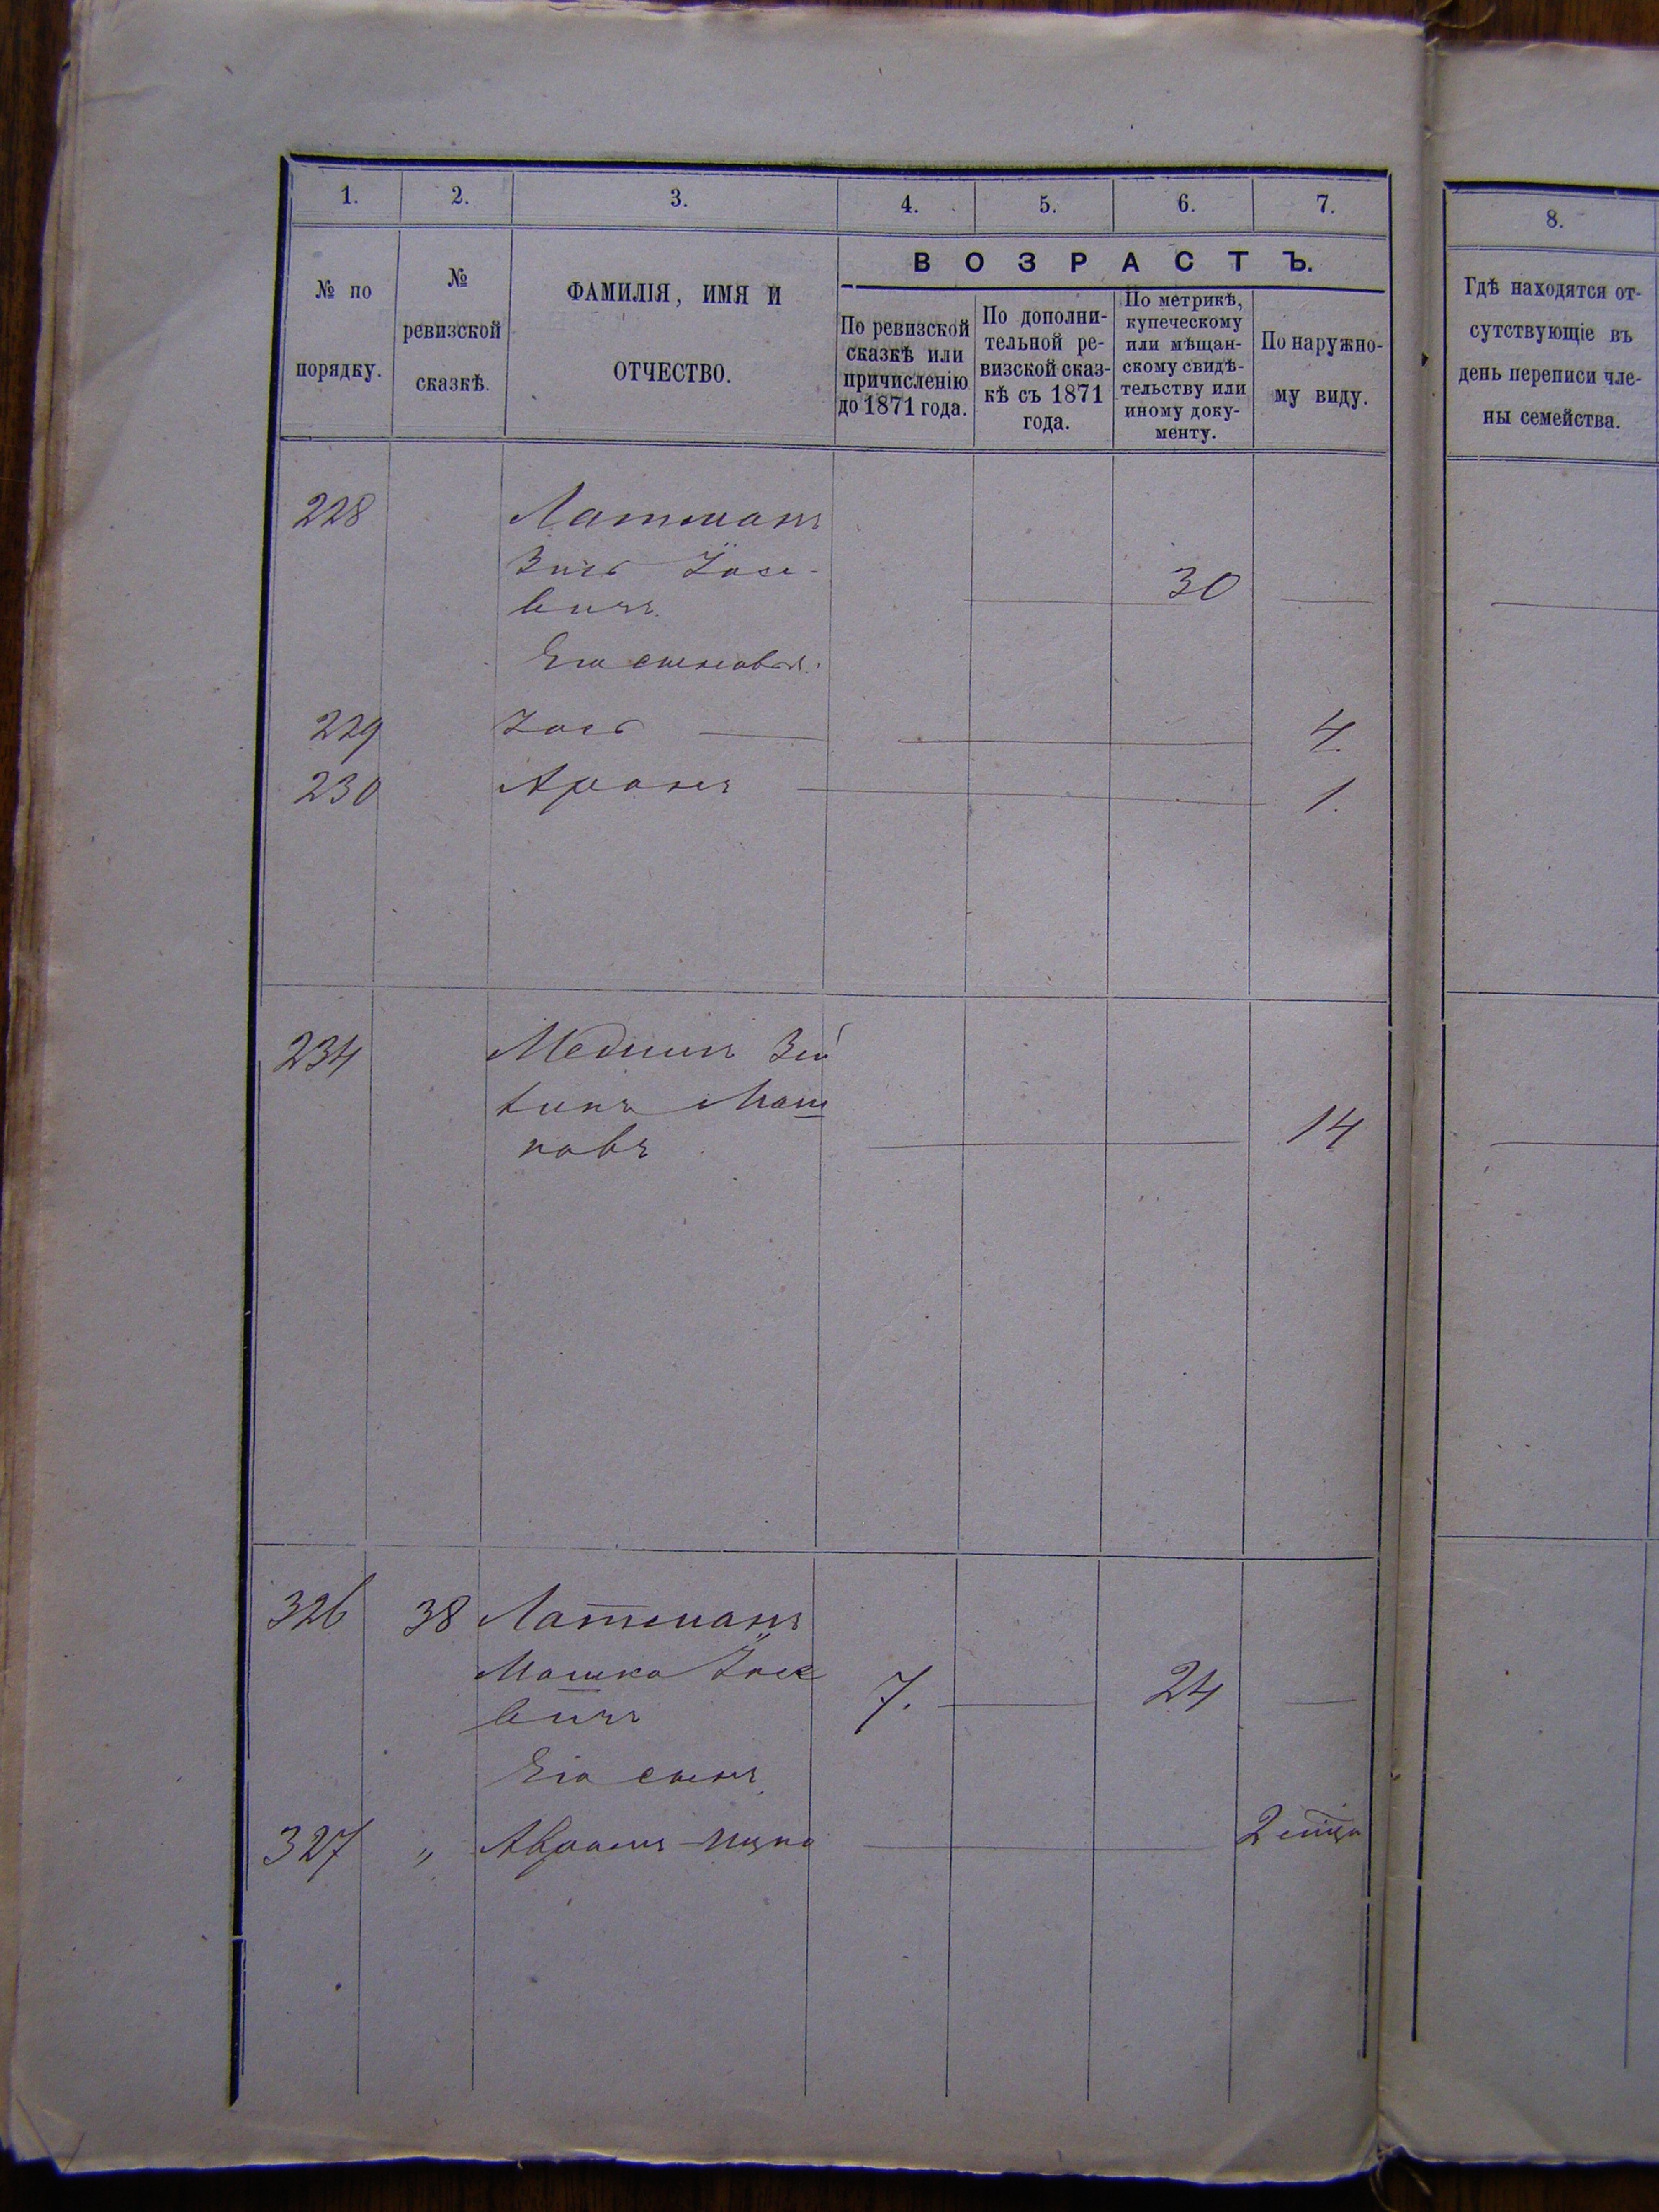 1. 2. 3. 4. 5. 6. 7. 8.
№ по порядку.
№ ревизской сказкѣ.
ФАМИЛІЯ, ИМЯ И ОТЧЕСТВО.
ВОЗРАСТЪ.
По ревизской сказкѣ или причисленію до 1871 года.
По дополни-
тельной ре-
визской сказ-
кѣ съ 1871
года.
По метрикѣ,
купеческому
или мѣщан-
скому свидѣ-
тельству или
иному доку-
менту.
По наружно-
му виду.
Гдѣ находятся от-
сутствующіе въ
день переписи чле-
ны семейства.
228 Латманъ
Іосе-
вичъ 30
Его сыновья:
229 Іось 4.
230 Аронъ 1.
234
Маш
ковъ 14
326 38 Латманъ
Мошка Іосе
вичъ 7. 24
Его сынъ
327 „ Абрамъ-Ицко 2